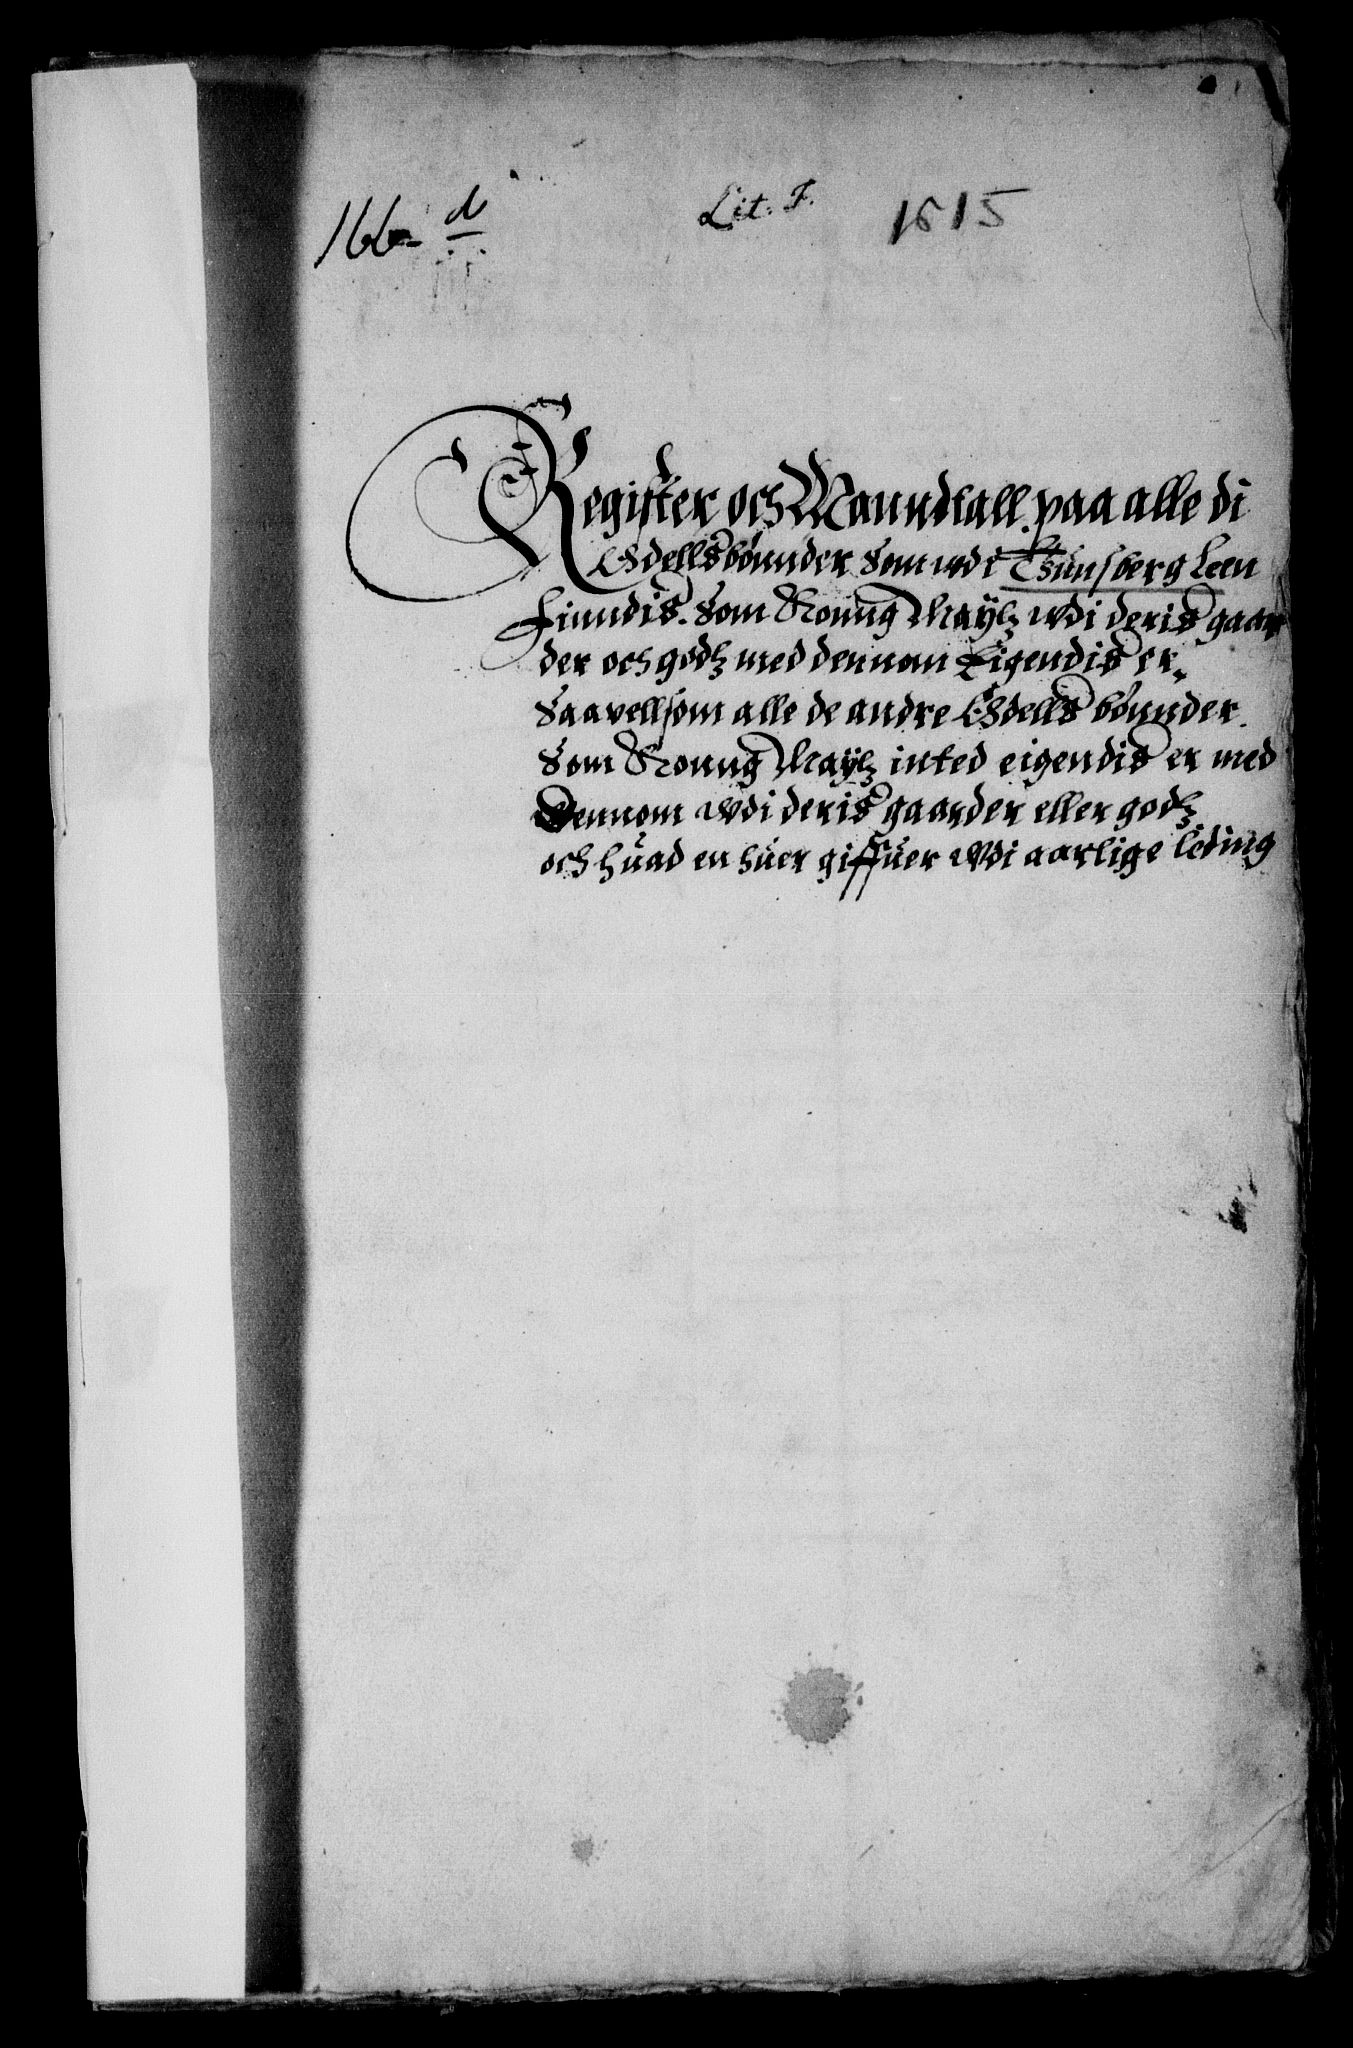 166 d
Lit. F. 1615
Register och Manndtall paa alle di
Odellsbønnder Som wdi Tünsberg Leen
Finndis. Som Konng Maÿtz wdi deris gaar
der och godtz med dennom Eigendis er,
Saavellsom alle de andre Odells bønnder.
Som Konng Maÿtz inted eigendis er med
Dennom wdi deris gaarder eller godtz
och huad en huer giffuer wdi aarlige leding